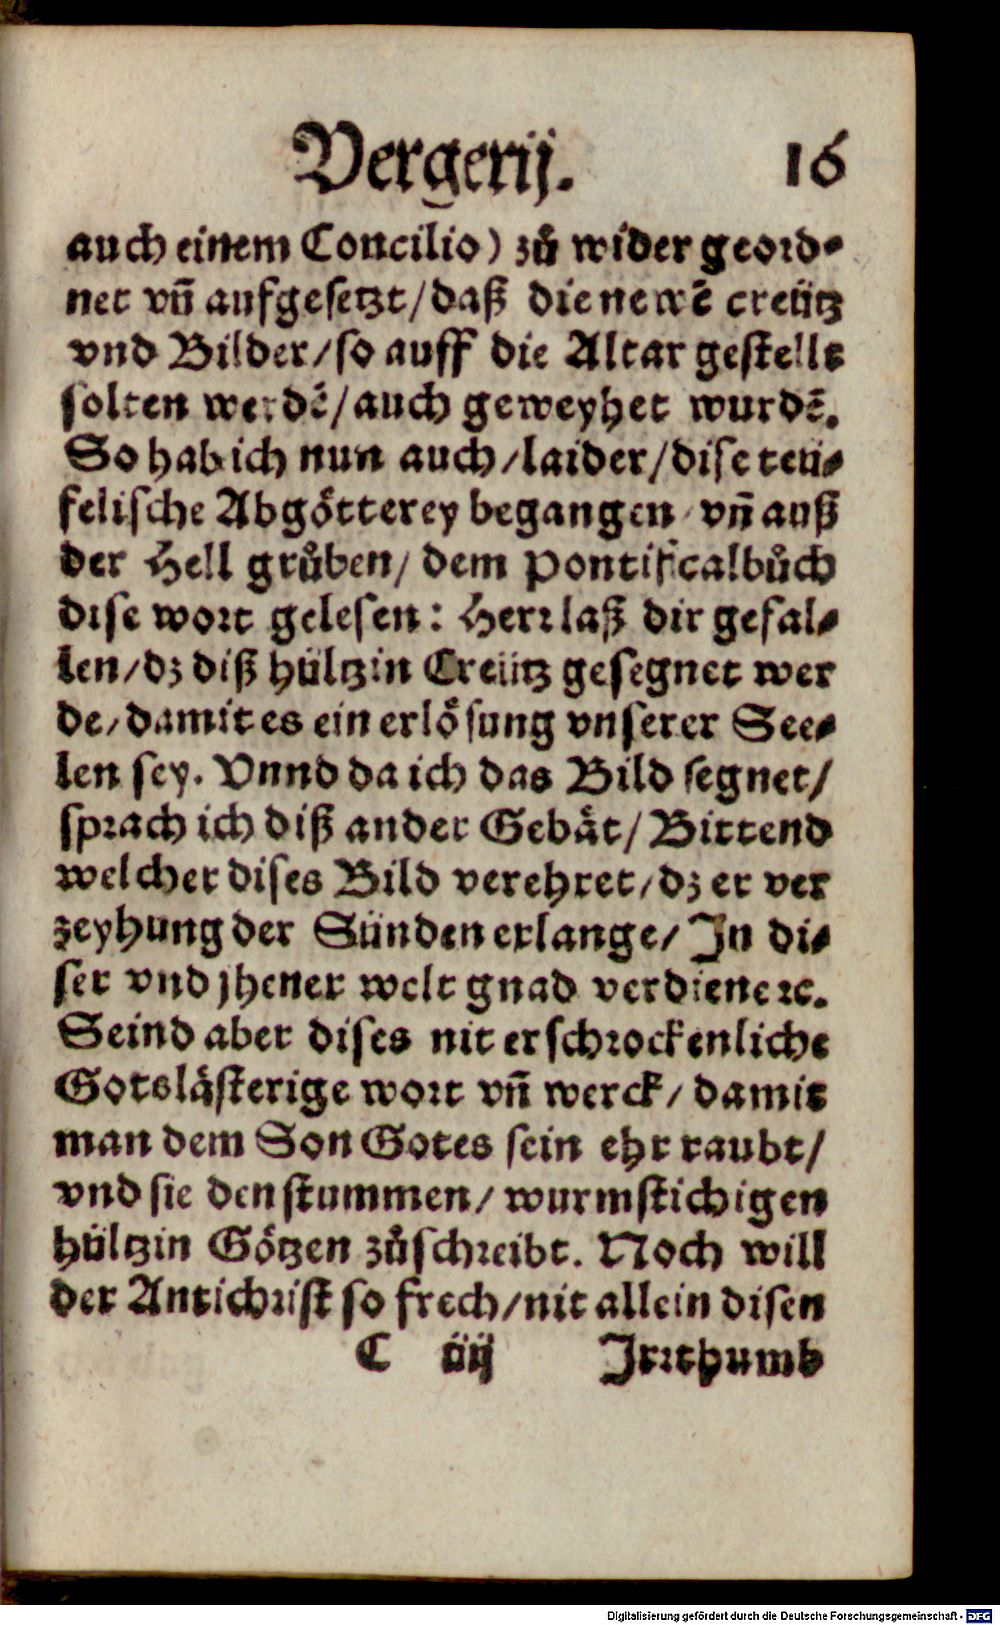 Vergerij. 16
auch einem Concilio) zů wider geord⸗
net vñ aufgesetzt/daß die newẽ creütz
vnd Bilder/so auff die Altar gestellt
solten werdẽ/auch geweyhet wurdẽ.
So hab ich nun auch/laider/dise teü⸗
felische Abgötterey begangen/vñ auß
der Hell grůben/dem Pontificalbůch
dise wort gelesen: Herr laß dir gefal⸗
len/dz diß hültzin Creütz gesegnet wer
de/damit es ein erlösung vnserer See⸗
len sey. Vnnd da ich das Bild segnet/
sprach ich diß ander Gebät/Bittend
welcher dises Bild verehret/dz er ver
zeyhung der Sünden erlange/In di⸗
ser vnd jhener welt gnad verdiene ꝛc.
Seind aber dises nit erschrockenliche
Gotslästerige wort vñ werck/damit
man dem Son Gotes sein ehr raubt/
vnd sie den stummen/wurmstichigen
hültzin Götzen zůschreibt. Noch will
der Antichrist so frech/nit allein disen
C iiij Irrthumb
Digitalisierung gefördert durch die Deutsche Forschungsgemeinschaft - DFG